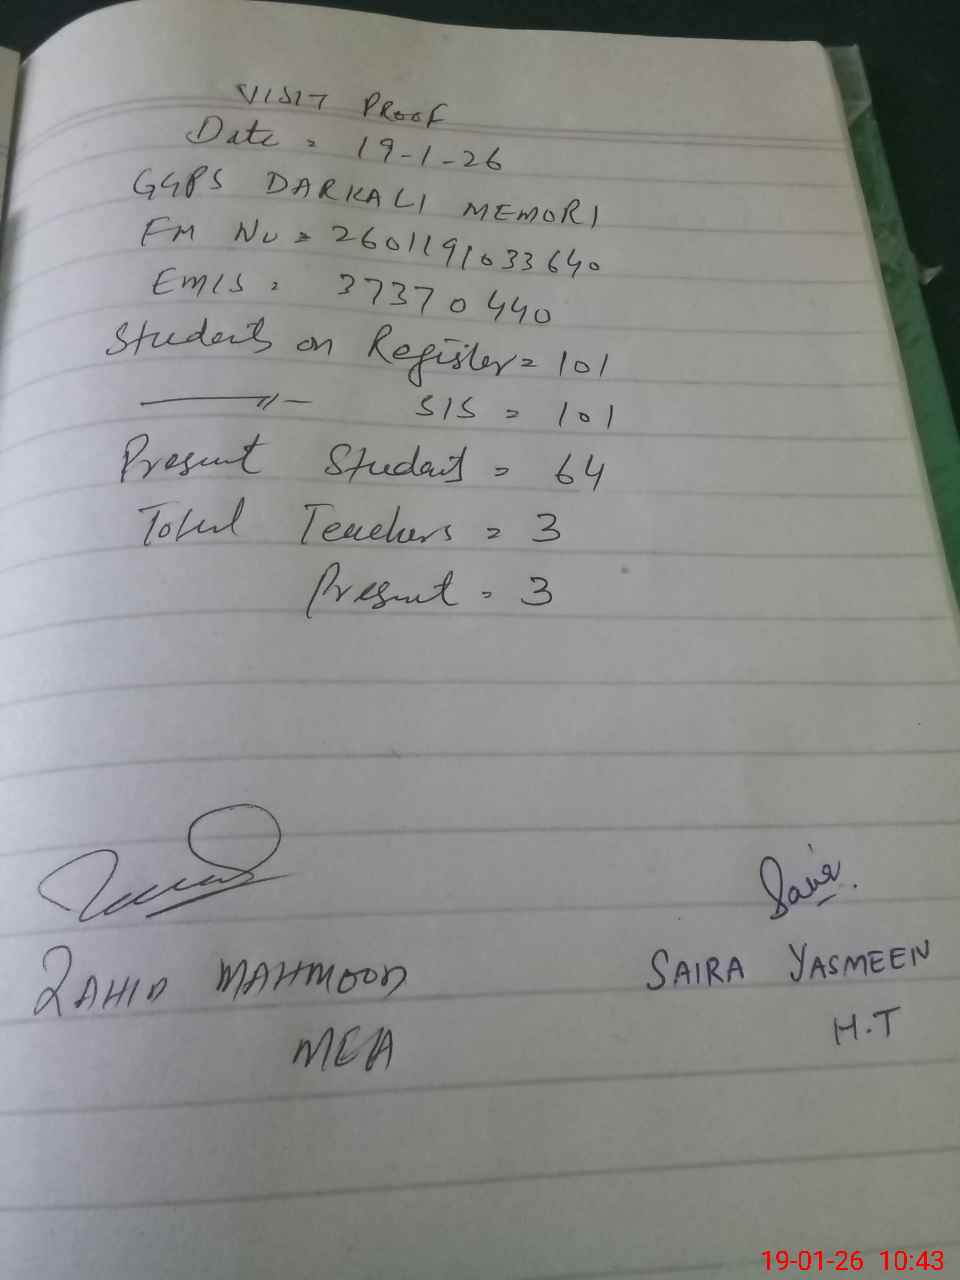 VISIT PROOF
Date = 19-1-26
GGPS DARKALI MEMORI
FM No = 2601191033640
EMIS = 37370440
Students on Register = 101
——〃— SIS = 101
Present Students = 64
Total Teachers = 3
Present = 3
Saira
ZAHID MAHMOOD
SAIRA YASMEEN
MEA
H.T
19-01-26 10:43